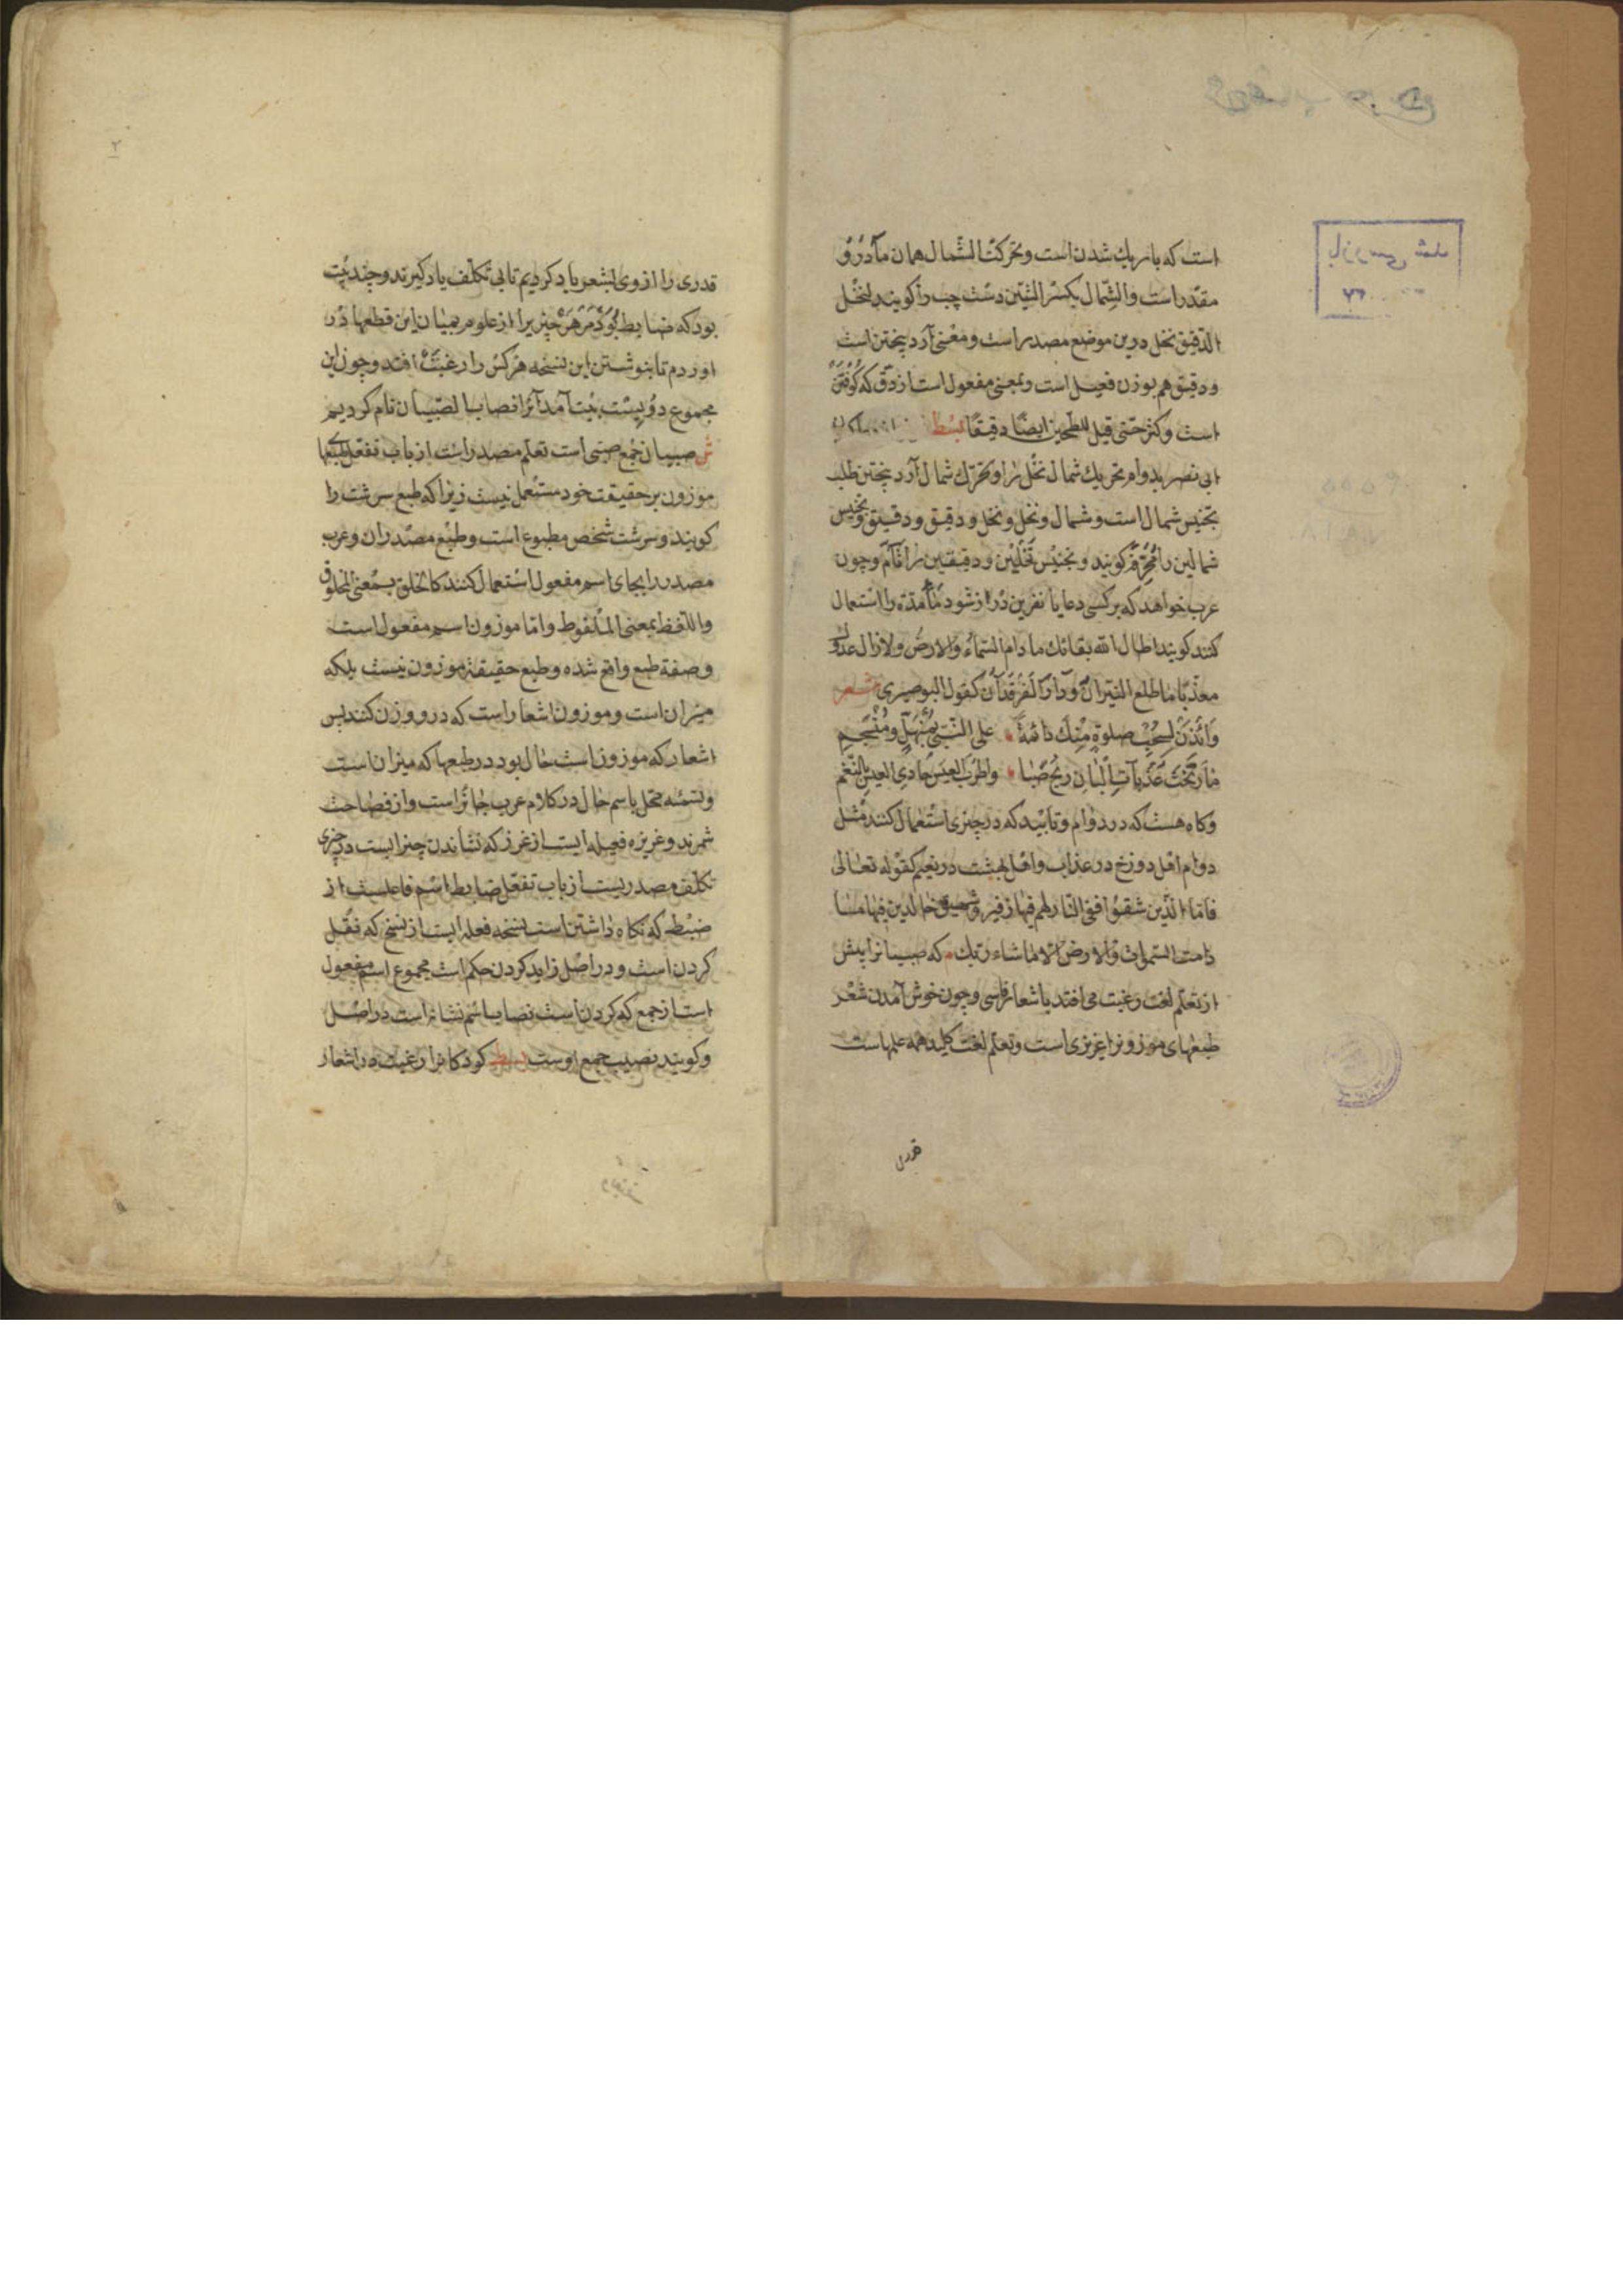 است که باریک شدن است و تحرکت الشمال همان ما درو
مقدر است والشمال بکسر الشین دست چپ را کویند لنخل
الدقیق نخل درین موضع مصدر است و معنی آرد بیختن است
و دقیق هم بوزن فعیل است و بمعنی مفعول است از دق که کوفتن
است وکثر حتی قیل للطحین ایضا دقیقا بسط
ابی نصر بدوام تحریک شمال نخل را و تحرک شمال آرد بیختن طلب
تجنیس شمال است و شمال و نخل و نخل و دقیق و دقیق و تجنیس
شمالین را محرف کویند و تجنیس نخلین و دقیقین را تام و چون
عرب خواهد که بر کسی دعا یا نفرین دراز شود مدة را استعمال
کنند کویند اطال الله بقائک ما دام السماء والارض ولا زال عدوک
معذبا ما طلع النیران و دار الفرقدان کقول البوصیری شعر
وائذن لسحب صلوة منک دائمة علی النبی بمنهل ومنسجم
ما رنحت عذبات البان ریح صبا واطرب العیس حادی العیس بالنغم
وکاه هست که در دوام و تابید که در چیزی استعمال کنند مثل
دوام اهل دوزخ در عذاب و اهل بهشت در نعیم کقوله تعالی
فاما الذین شقوا ففی النار لهم فیها زفیر وشهیق خالدین فیها ما
دامت السموات والارض الا ما شاء ربک که صبیانرا پیش
از تعلم لغت رغبت می افتد باشعار فارسی و چون خوش آمدن شعر
طبعهای موزونرا غریزی است و تعلم لغت کلید همه علمهاست
قدری
قدری را از وی بشعر یاد کردیم تا بی تکلف یاد کیرند و چند بیت
بود که ضابط بود مر هر چیزیرا از علوم بمیان این قطعها در
اوردم تا بنوشتن این نسخه هر کس را رغبت افتد و چون این
مجموع دویست بیت آمد آنرا نصاب الصبیان نام کردیم
ش صبیان جمع صبی است تعلم مصدر است از باب تفعل طبعهای
موزون بر حقیقت خود مستعمل نیست زیرا که طبع سرشت را
کویند و سرشت شخص مطبوع است و طبع مصدر ان و عرب
مصدر را بجای اسم مفعول استعمال کنند کالخلق بمعنی المخلوق
واللفظ بمعنی الملفوظ و اما موزون اسم مفعول است
و صفة طبع واقع شده و طبع حقیقة موزون نیست بلکه
میزان است و موزون اشعار است که درو وزن کنند پس
اشعار که موزون است حال بود در طبعها که میزان است
و تسمیه محل باسم حال در کلام عرب جائز است و از فصاحت
شمرند و غریزه فعیله ایست از غرز که نشاندن چیزیست در چیزی
تکلف مصدریست از باب تفعل ضابط اسم فاعلست از
ضبط که نکاه داشتن است نسخه فعله ایست از نسخ که نقل
کردن است و در اصل زاید کردن حکم است مجموع اسم مفعول
است از جمع که کردن است نصاب اسم نشانه است در اصل
و کویند نصیب جمع اوست بسط کودکانرا رغبت در اشعار